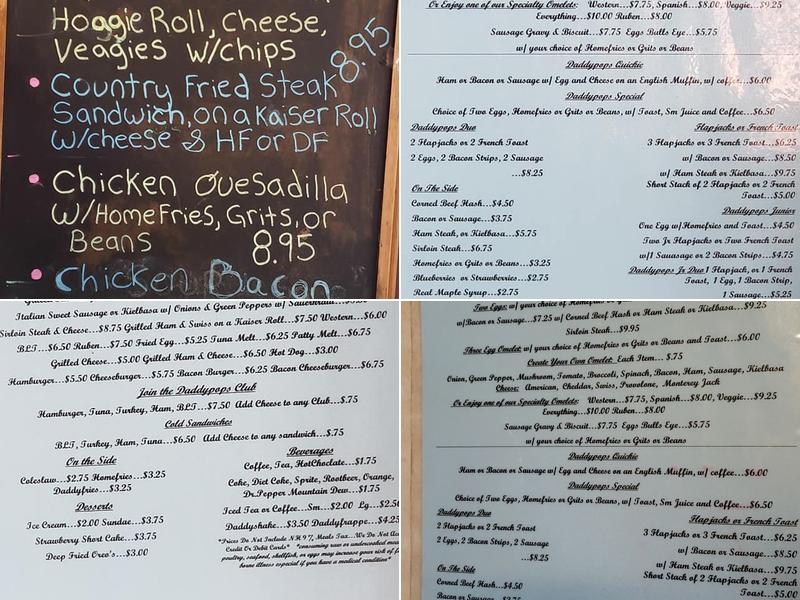 Hoggie Roll, Cheese,
Veagies w/chips
8.95
Country Fried Steak
Sandwich, on a Kaiser Roll
w/cheese & HF or DF
Chicken Quesadilla
w/HomeFries, Grits, or
Beans 8.95
Chicken Bacon
Or Enjoy one of our Specialty Omelets: Western...$7.75, Spanish...$8.00, Veggie...$9.25
Everything...$10.00 Ruben...$8.00
Sausage Gravy & Biscuit...$7.75 Eggs Bulls Eye...$5.75
w/ your choice of Homefries or Grits or Beans
Daddypops Quickie
Ham or Bacon or Sausage w/ Egg and Cheese on an English Muffin, w/ coffee...$6.00
Daddypops Special
Choice of Two Eggs, Homefries or Grits or Beans, w/ Toast, Sm Juice and Coffee...$6.50
Daddypops Duo
2 Hapjacks or 2 French Toast
2 Eggs, 2 Bacon Strips, 2 Sausage
...$8.25
On The Side
Corned Beef Hash...$4.50
Bacon or Sausage...$3.75
Ham Steak, or Kielbasa...$5.75
Sirloin Steak...$6.75
Homefries or Grits or Beans...$3.25
Blueberries or Strawberries...$2.75
Real Maple Syrup...$2.75
Hapjacks or French Toast
3 Hapjacks or 3 French Toast...$6.25
w/ Bacon or Sausage...$8.50
w/ Ham Steak or Kielbasa...$9.75
Short Stack of 2 Hapjacks or 2 French
Toast...$5.00
Daddypops Junior
One Egg w/Homefries and Toast...$4.50
Two Jr Hapjacks or Two French Toast
w/1 Sauusage or 2 Bacon Strips...$4.75
Daddypops Jr Duo 1 Hapjack, or 1 French
Toast, 1 Egg, 1 Bacon Strip,
1 Sausage...$5.25
Italian Sweet Sausage or Kielbasa w/ Onions & Green Peppers w/ Sauerkraut
Sirloin Steak & Cheese...$8.75 Grilled Ham & Swiss on a Kaiser Roll...$7.50 Western...$6.00
B.L.T...$6.50 Ruben...$7.50 Fried Egg...$5.25 Tuna Melt...$6.25 Patty Melt...$6.75
Grilled Cheese...$5.00 Grilled Ham & Cheese...$6.50 Hot Dog...$3.00
Hamburger...$5.50 Cheeseburger...$5.75 Bacon Burger...$6.25 Bacon Cheeseburger...$6.75
Join the Daddypops Club
Hamburger, Tuna, Turkey, Ham, BLT...$7.50 Add Cheese to any Club...$.75
Cold Sandwiches
BLT, Turkey, Ham, Tuna...$6.50 Add Cheese to any sandwich...$.75
On the Side
Coleslaw...$2.75 Homefries...$3.25
Daddyfries...$3.25
Desserts
Ice Cream...$2.00 Sundae...$3.75
Strawberry Short Cake...$3.75
Deep Fried Oreo's...$3.00
Beverages
Coffee, Tea, HotChoclate...$1.75
Coke, Diet Coke, Sprite, Rootbeer, Orange,
Dr.Pepper Mountain Dew...$1.75
Iced Tea or Coffee...Sm...$2.00 Lg...$2.50
Daddyshake...$3.50 Daddyfrappe...$4.25
*Prices Do Not Include NH 9%, Meals Tax...We Do Not
Credit Or Debit Cards* *consuming raw or undercooked
poultry, seafood, shellfish, or eggs may increase your risk of
borne illness especial if you have a medical condition*
Two Eggs: w/ your choice of Homefries or
w/Bacon or Sausage...$7.25 w/ Corned Beef Hash or Ham Steak or Kielbasa...$9.25
Sirloin Steak...$9.95
Three Egg Omelet: w/ your choice of Homefries or Grits or Beans and Toast...$6.00
Create Your Own Omelet: Each Item... $.75
Onion, Green Pepper, Mushroom, Tomato, Broccoli, Spinach, Bacon, Ham, Sausage, Kielbasa
Cheese: American, Cheddar, Swiss, Provolone, Monterey Jack
Or Enjoy one of our Specialty Omelets: Western...$7.75, Spanish...$8.00, Veggie...$9.25
Everything...$10.00 Ruben...$8.00
Sausage Gravy & Biscuit...$7.75 Eggs Bulls Eye...$5.75
w/ your choice of Homefries or Grits or Beans
Daddypops Quickie
Ham or Bacon or Sausage w/ Egg and Cheese on an English Muffin, w/ coffee...$6.00
Daddypops Special
Choice of Two Eggs, Homefries or Grits or Beans, w/ Toast, Sm Juice and Coffee...$6.50
Daddypops Duo
2 Hapjacks or 2 French Toast
2 Eggs, 2 Bacon Strips, 2 Sausage
...$8.25
On The Side
Corned Beef Hash...$4.50
Bacon or Sausage...$3.75
Hapjacks or French Toast
3 Hapjacks or 3 French Toast...$6.25
w/ Bacon or Sausage...$8.50
w/ Ham Steak or Kielbasa...$9.75
Short Stack of 2 Hapjacks or 2 French
Toast...$5.00